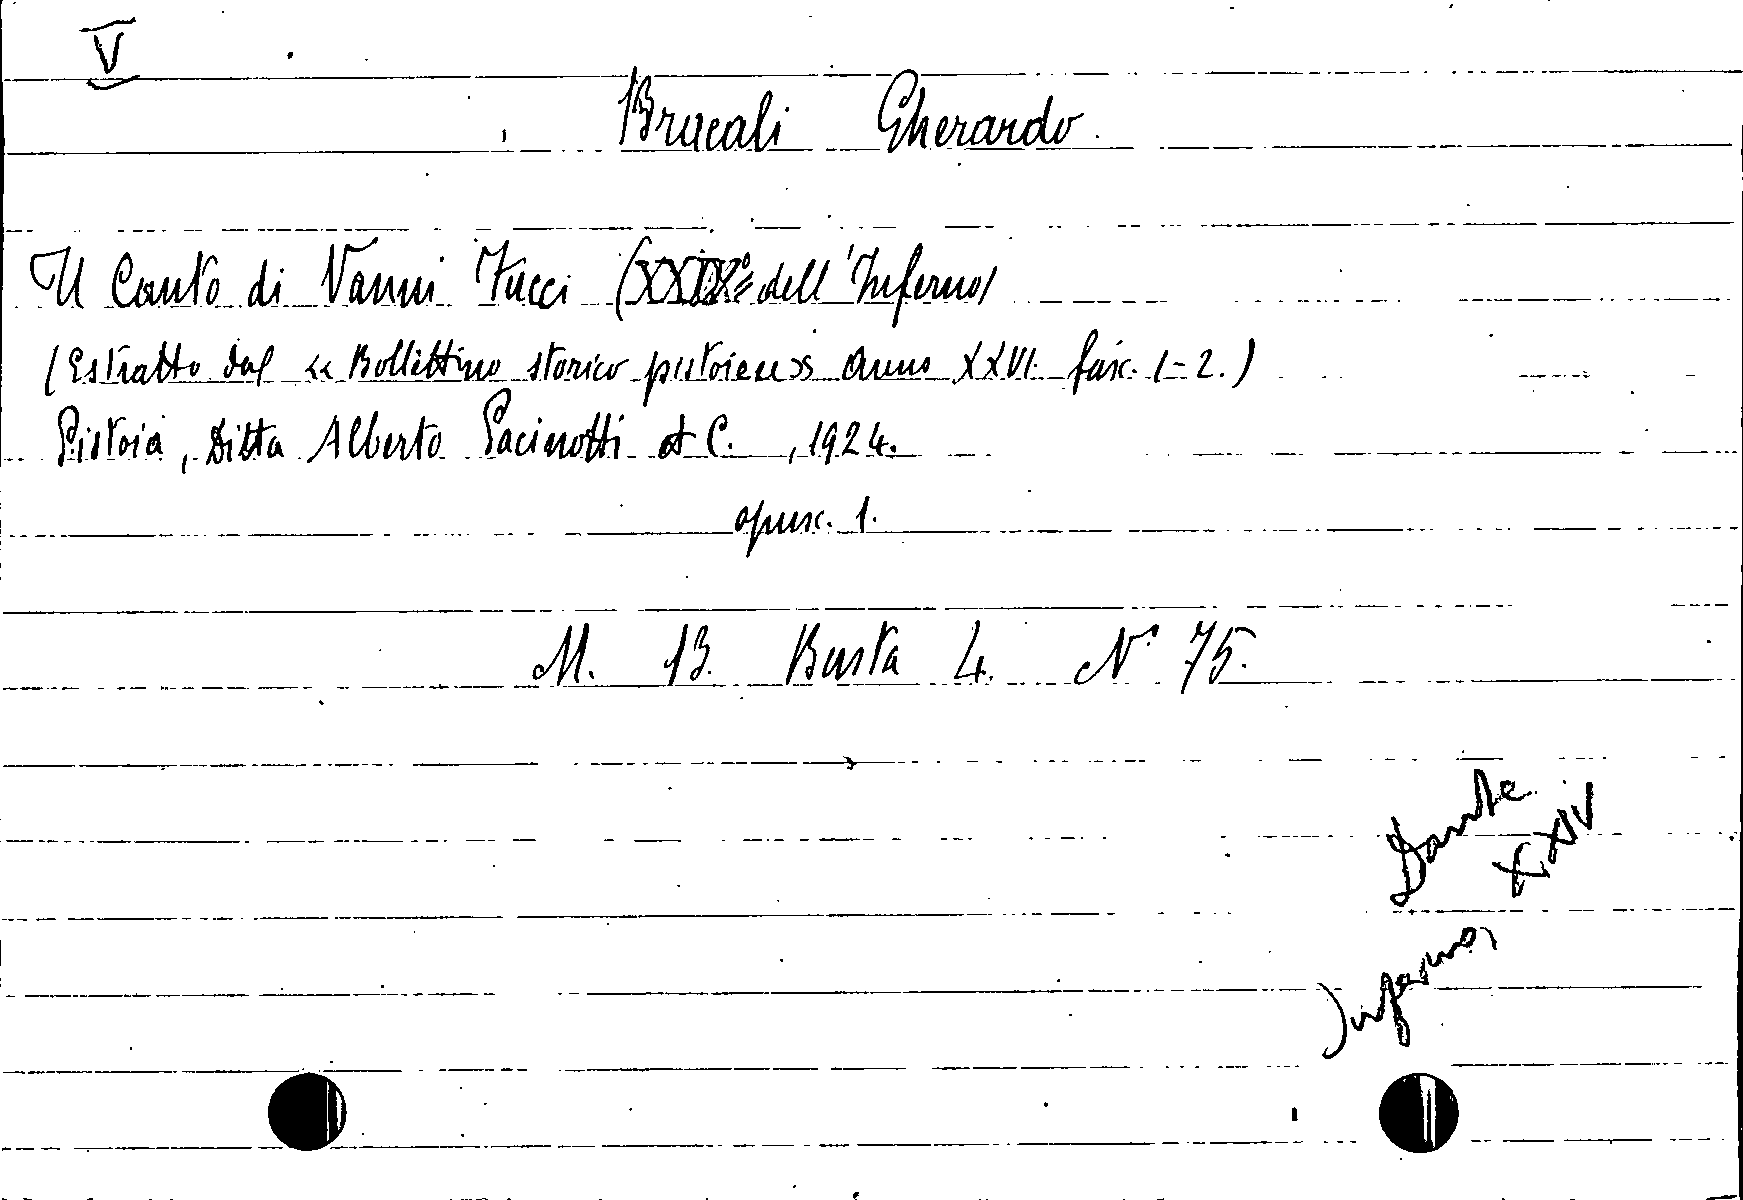 V
Bracali Gherardo.
Il Canto di Vanni Fucci ( dell'Inferno)
(Estratto dal << Bollettino storico pistoiese>> Anno XXVI. fasc. 1-2.)
Pistoia, Ditta Alberto Pacinotti et C., 1924.
opusc. 1.
M. 13. Busta 4. N° 75.
Dante
XXIV
Inferno,